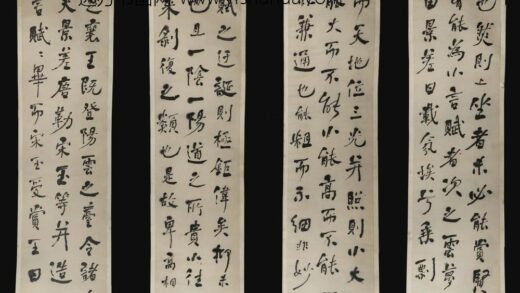 襄王既登陽雲之臺令諸
夫景差唐勒宋玉等并造
言賦〻畢而宋玉受賞王曰
賦之迂誕則極鉅偉矣抑未
且一陰一陽道之所貴小往
來剝復之類也是故卑高相
而天地位三光并照則小大
能大而不能小能高而不能
兼通也能粗而不細非妙
也然則上坐者未必能賞賢
有能為小言賦者次之雲夢
田景差曰載氛埃兮乘剽